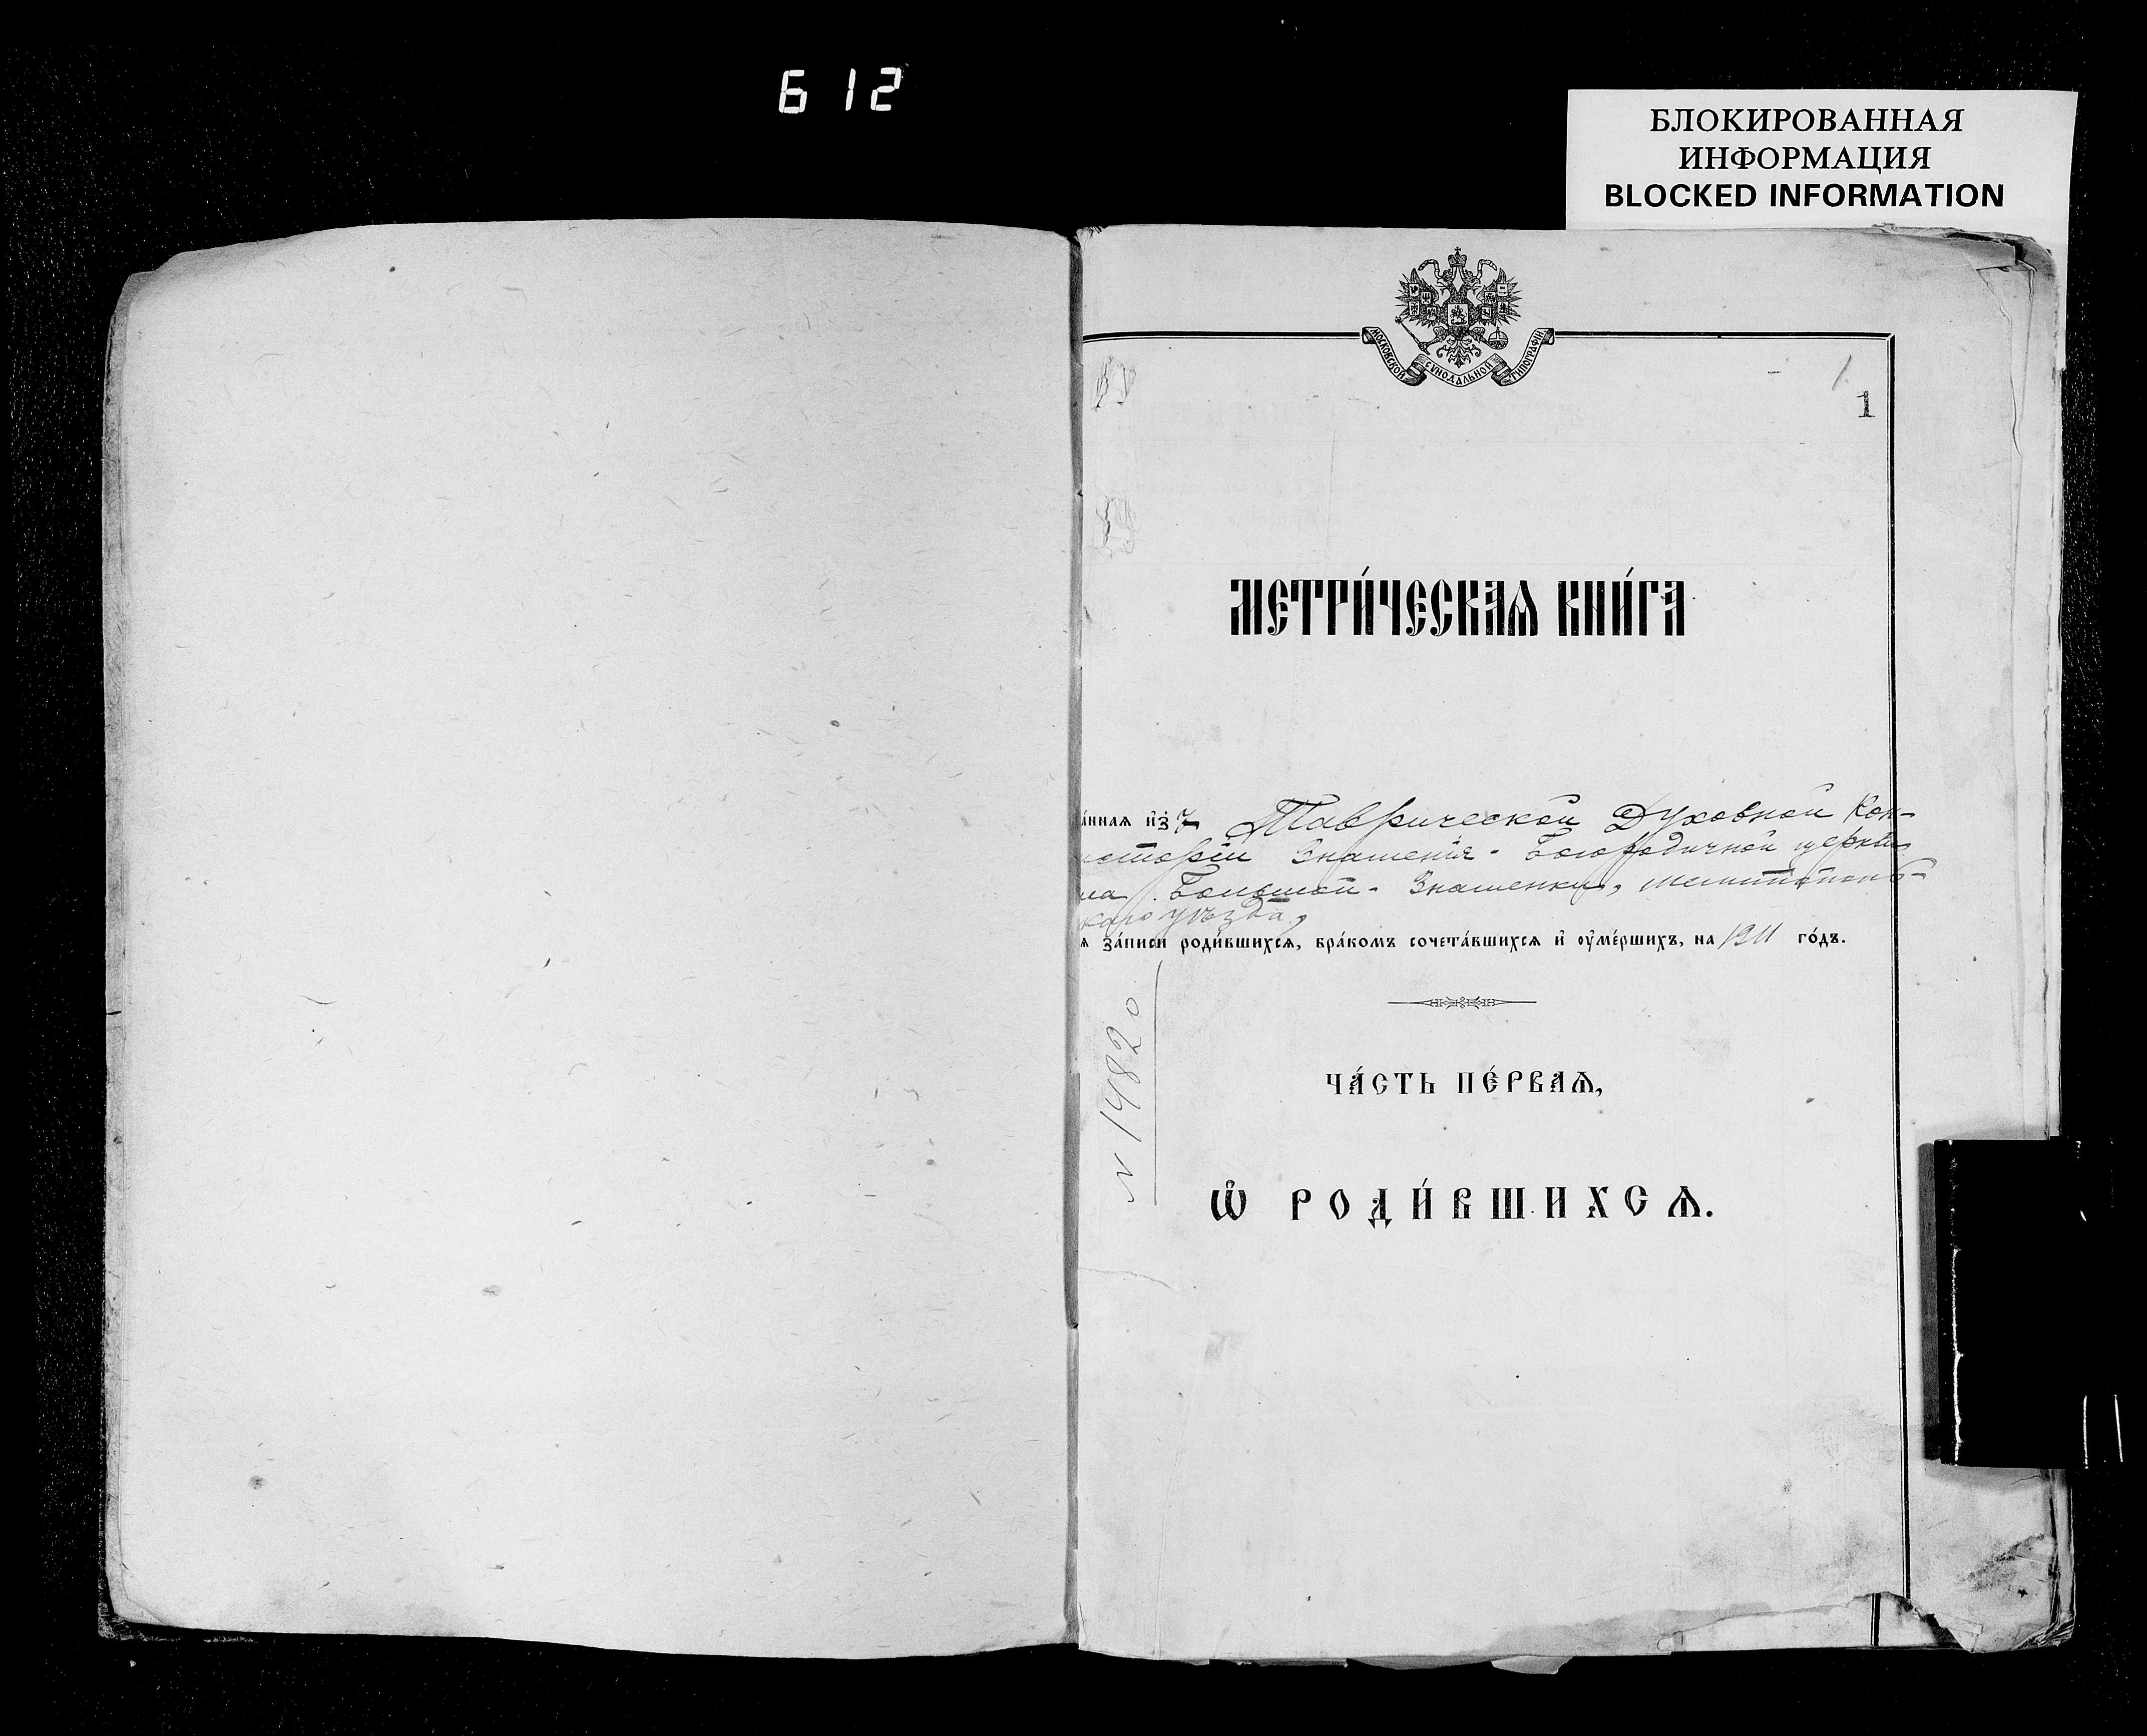 612
БЛОКИРОВАННАЯ
ИНФОРМАЦИЯ
BLOCKED INFORMATION
МОСКОВСКОЙ СѴНОДАЛЬНОЙ ТИПОГРАФІИ
1
1
МЕТРИ́ЧЕСКАѦ КНИ́ГА
а́ннаѧ и҆з̾ Таврической Духовной Кон-
систоріи Знаменія-Богородичной церкви
ла Большой-Знаменки, Мелитополь-
скаго уѣзда,
ѧ за́писи роди́вшихсѧ, бра́комъ сочета́вшихсѧ и҆ ᲂу҆ме́ршихъ, на 1911 го́дъ.
N 14820
ЧА́СТЬ ПЕ́РВАѦ,
Ѽ РОДИ́ВШИХСѦ.